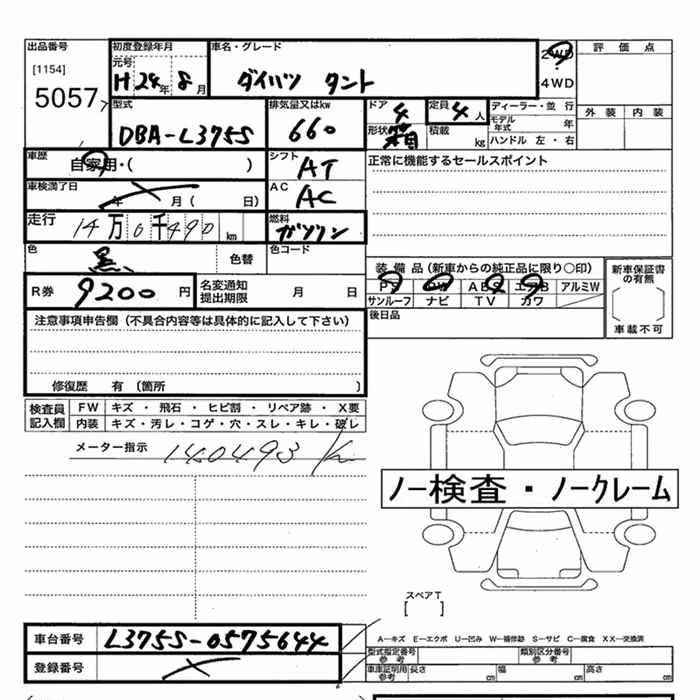 出品番号
[1154]
5057
初度登録年月
元号
H 24年 8月
車名・グレード
ダイハツ タント
2WD
4WD
評価点
外装 内装
型式
DBA-L375S
排気量又はkw
660
ドア 4
形状 箱
定員 4人
積載 kg
ディーラー・並行
モデル年式 年
ハンドル 左・右
車歴
自家用・( )
シフト
AT
正常に機能するセールスポイント
車検満了日
年 月( 日)
AC
AC
走行
14万0千490 km
燃料
ガソリン
色
黒
色替
色コード
装備品(新車からの純正品に限り○印)
PS PW ABS エアB アルミW
サンルーフ ナビ TV カワ
新車保証書の有無
[ ]
車載不可
R券 9200円
名変通知
提出期限
月 日
後日品
注意事項申告欄(不具合内容等は具体的に記入して下さい)
修復歴 有 〔箇所 〕
検査員
記入欄
FW キズ・飛石・ヒビ割・リペア跡・X要
内装 キズ・汚レ・コゲ・穴・スレ・キレ・破レ
メーター指示
140493 km
ノー検査・ノークレーム
スペアT
[ ]
車台番号
L375S-0575644
登録番号
A-キズ E-エクボ U-凹み W-補修跡 S-サビ C-腐食 XX-交換済
型式指定番号
参考
類別区分番号
参考
車庫証明用
参考
長さ cm
幅 cm
高さ cm